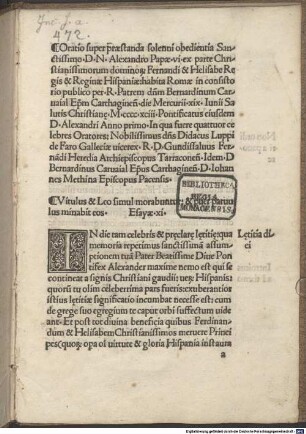 Inc. s. a.
472.
Oratio super præstanda solenni obedientia Sanctissimo
D. N. Alexandro Papæ .vi. ex parte Christianissimorum
dominoꝝ Fernandi & Helisabe Regis
& Reginæ Hispaniæ: habita Romæ in consistorio
publico per R. Patrem dñm Bernardinum Carvaial
Epm̄ Carthagineñ. die Mercurii. xix. Iunii Salutis
Christianę. M.cccc.xciii. Pontificatus eiusdem
D. Alexandri Anno primo. In qua fuere quattuor celebres
Oratores: Nobilissimus dñs Didacus Luppi
de Faro Galleciæ vicerex. R. D. Gundissaluus Fernãdi
Heredia Archiepiscopus Tarraconeñ. Idem D.
Bernardinus Caruaial Epūs Carthagineñ. D. Iohannes
Methina Episcopus Pacensis.
Vitulus & Leo simul morabuntur: & puer paruulus
minabit eos. Esayæ. xi.
BIBLIOTHECA
REGIA
MONACENSIS.
IN die tam celebris & pręclarę lętitię: qua
memoria repetimus sanctissimā assumptionem
tuā Pater Beatissime Diue Pontifex
Alexander maxime nemo est qui se
contineat a signis Christiani gaudii: ueꝝ Hispania:
quorū tu olim celeberrima pars fueris: exuberantioris
istius lętitiæ significatio incumbat necesse est: cum
de grege suo egregium te caput orbi suffectum uideant.
Et post tot diuina beneficia quibus Ferdinandum
& Helisabem Christianissimos meruere Principes:
quoꝝ opa ol' uirtute & gloria Hispania instaura
Lętitia dici
a